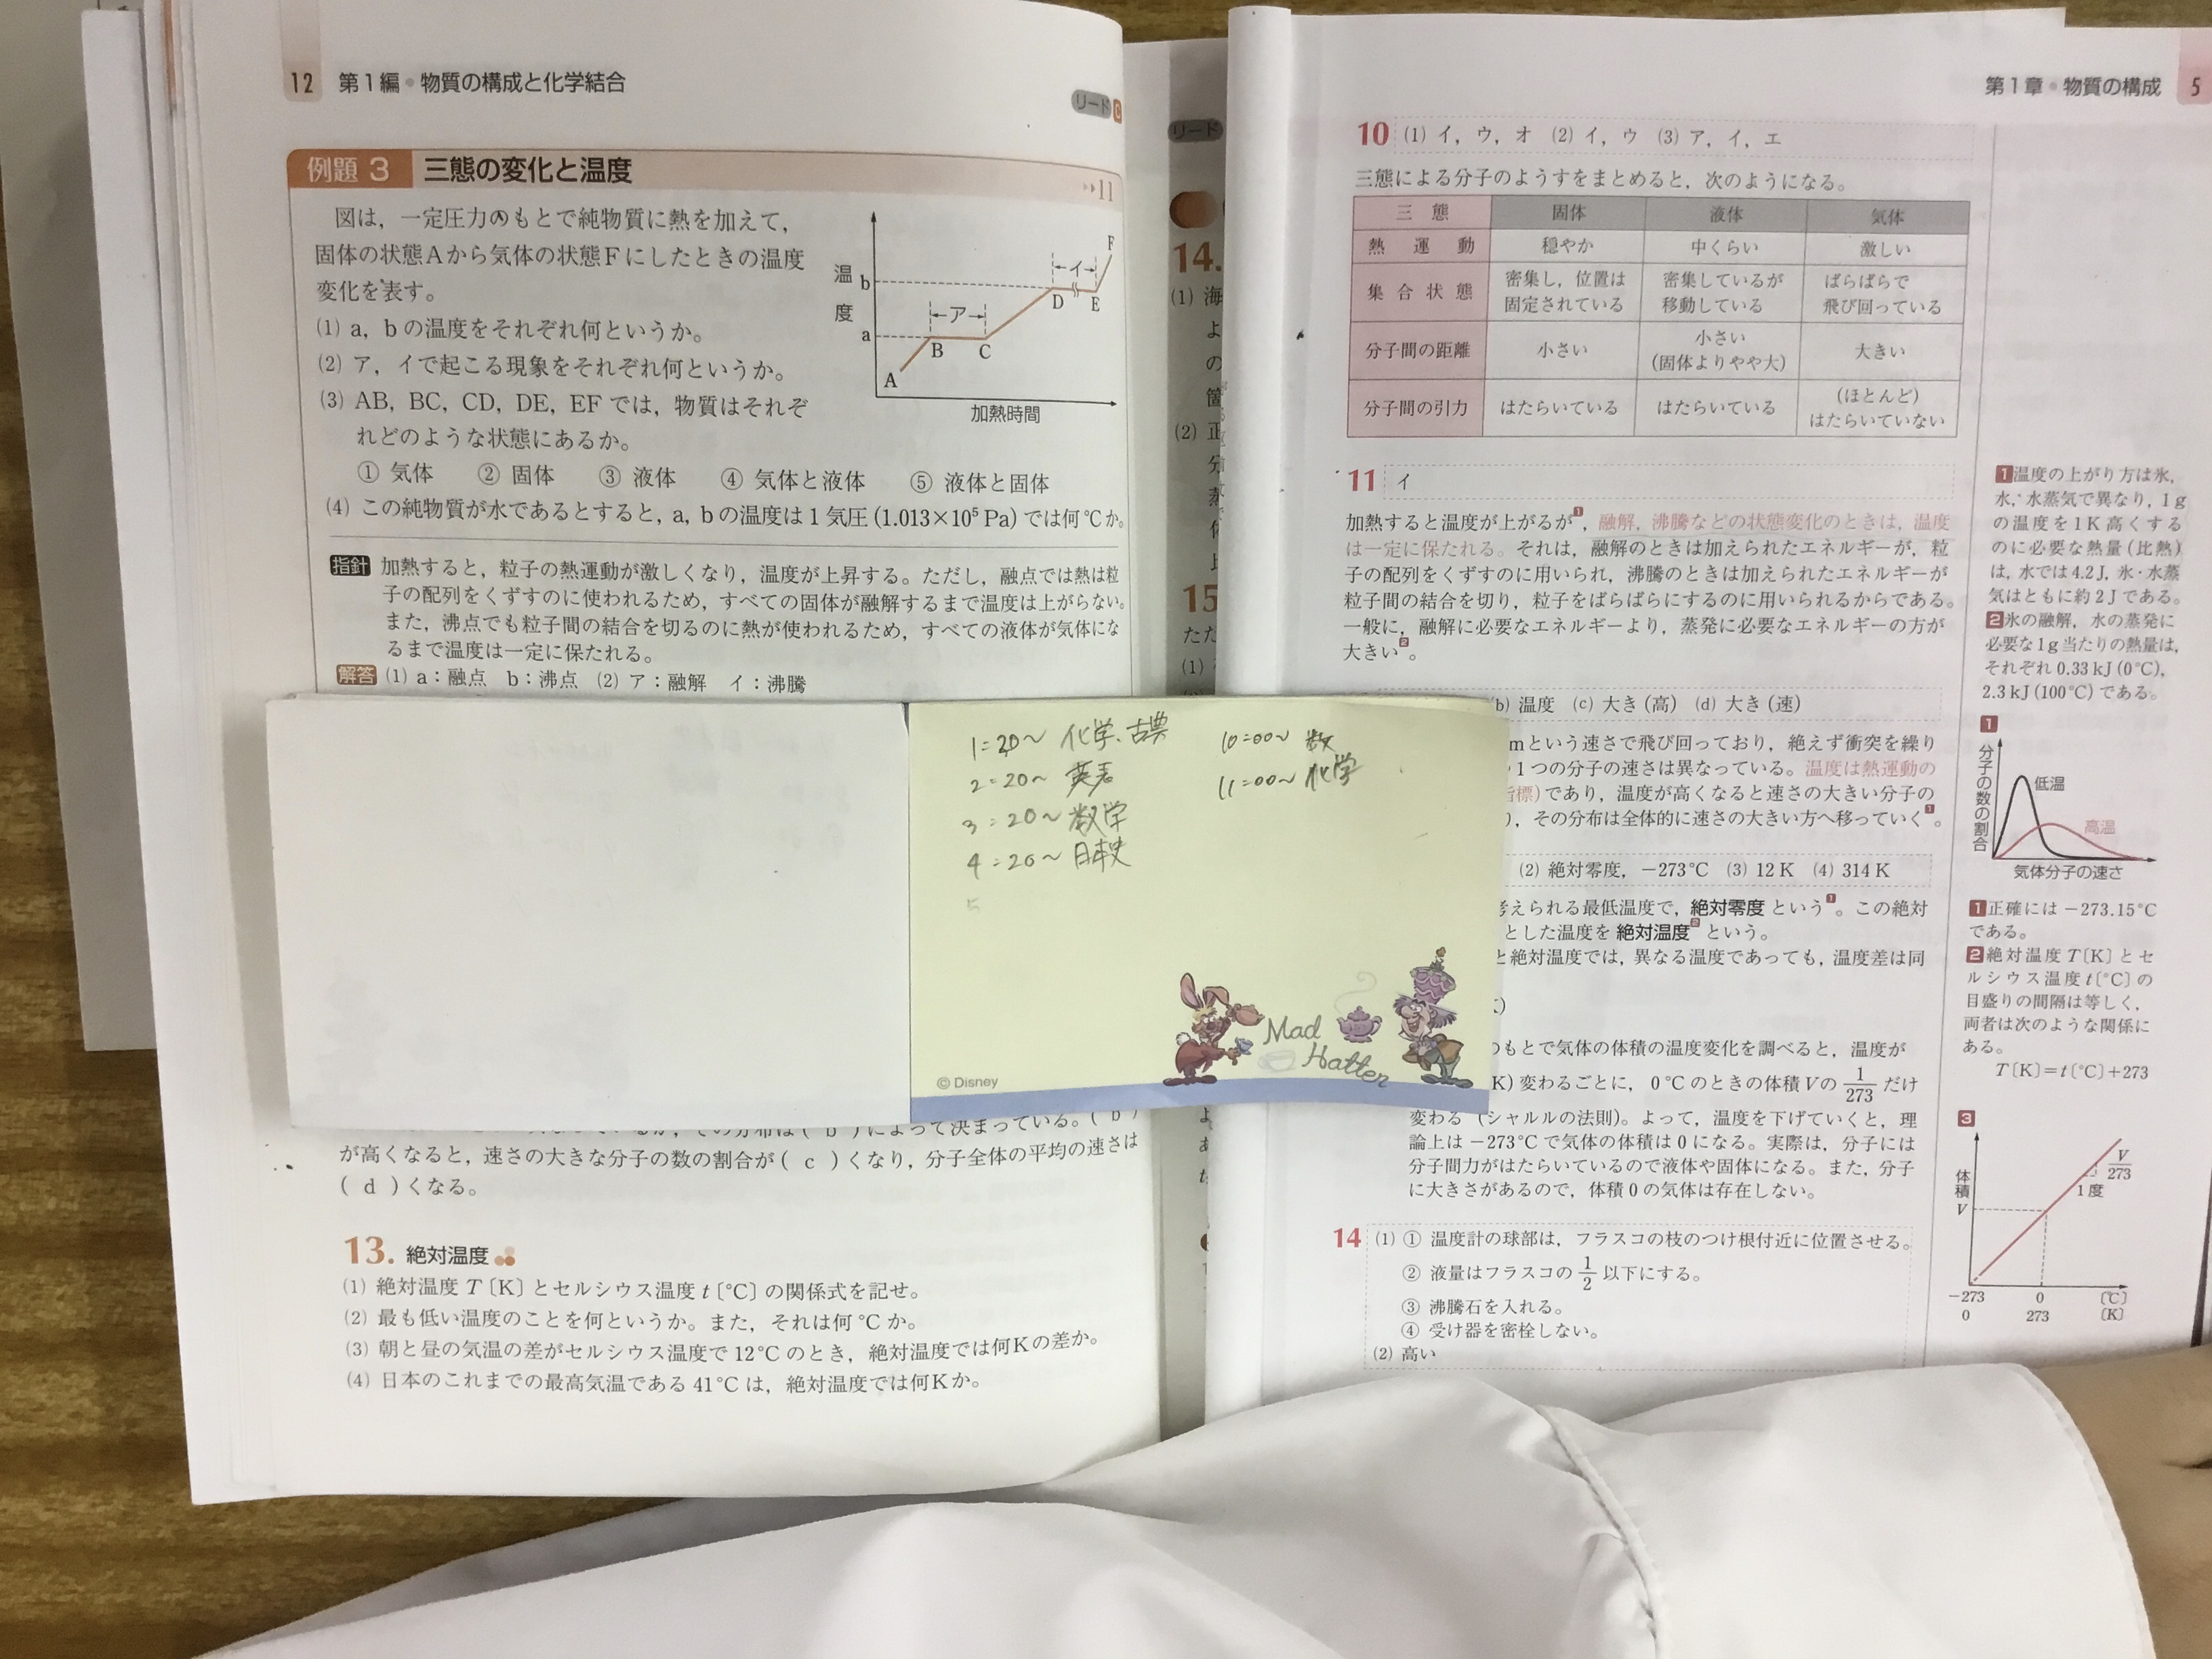 12 第1編・物質の構成と化学結合
リードC
例題 3 三態の変化と温度
▸▸11
図は，一定圧力のもとで純物質に熱を加えて，
固体の状態Aから気体の状態Fにしたときの温度
変化を表す。
(1) a，bの温度をそれぞれ何というか。
(2) ア，イで起こる現象をそれぞれ何というか。
(3) AB，BC，CD，DE，EFでは，物質はそれぞ
れどのような状態にあるか。
① 気体 ② 固体 ③ 液体 ④ 気体と液体 ⑤ 液体と固体
(4) この純物質が水であるとすると，a，bの温度は1気圧(1.013×10⁵Pa)では何℃か。
温度
b
a
A
B
C
D
E
F
ア
イ
加熱時間
指針 加熱すると，粒子の熱運動が激しくなり，温度が上昇する。ただし，融点では熱は粒
子の配列をくずすのに使われるため，すべての固体が融解するまで温度は上がらない。
また，沸点でも粒子間の結合を切るのに熱が使われるため，すべての液体が気体にな
るまで温度は一定に保たれる。
解答 (1) a：融点 b：沸点 (2) ア：融解 イ：沸騰
1:20〜 化学、古典
2:20〜 英表
3:20〜 数学
4:20〜 日本史
5
10:00〜 数
11:00〜 化学
Mad
Hatter
© Disney
によって決まっている。( b )
が高くなると，速さの大きな分子の数の割合が( c )くなり，分子全体の平均の速さは
( d )くなる。
13. 絶対温度
(1) 絶対温度 T〔K〕とセルシウス温度 t〔℃〕の関係式を記せ。
(2) 最も低い温度のことを何というか。また，それは何℃か。
(3) 朝と昼の気温の差がセルシウス温度で12℃のとき，絶対温度では何Kの差か。
(4) 日本のこれまでの最高気温である41℃は，絶対温度では何Kか。
リード
14.
(1) 海
よ
の
(2) 正
分
蒸
15
ただ
(1)
第1章・物質の構成 5
10 (1) イ，ウ，オ (2) イ，ウ (3) ア，イ，エ
三態による分子のようすをまとめると，次のようになる。
三態 固体 液体 気体
熱運動 穏やか 中くらい 激しい
集合状態 密集し，位置は固定されている 密集しているが移動している ばらばらで飛び回っている
分子間の距離 小さい 小さい(固体よりやや大) 大きい
分子間の引力 はたらいている はたらいている (ほとんど)はたらいていない
11 イ
加熱すると温度が上がるが1，融解，沸騰などの状態変化のときは，温度
は一定に保たれる。それは，融解のときは加えられたエネルギーが，粒
子の配列をくずすのに用いられ，沸騰のときは加えられたエネルギーが
粒子間の結合を切り，粒子をばらばらにするのに用いられるからである。
一般に，融解に必要なエネルギーより，蒸発に必要なエネルギーの方が
大きい2。
(b) 温度 (c) 大き(高) (d) 大き(速)
mという速さで飛び回っており，絶えず衝突を繰り
1つの分子の速さは異なっている。温度は熱運動の
指標)であり，温度が高くなると速さの大きい分子の
，その分布は全体的に速さの大きい方へ移っていく1。
(2) 絶対零度，−273℃ (3) 12K (4) 314K
考えられる最低温度で，絶対零度という1。この絶対
とした温度を絶対温度2という。
と絶対温度では，異なる温度であっても，温度差は同
のもとで気体の体積の温度変化を調べると，温度が
K)変わるごとに，0℃のときの体積Vの1/273だけ
変わる（シャルルの法則）。よって，温度を下げていくと，理
論上は−273℃で気体の体積は0になる。実際は，分子には
分子間力がはたらいているので液体や固体になる。また，分子
に大きさがあるので，体積0の気体は存在しない。
14 (1) ① 温度計の球部は，フラスコの枝のつけ根付近に位置させる。
② 液量はフラスコの1/2以下にする。
③ 沸騰石を入れる。
④ 受け器を密栓しない。
(2) 高い
1温度の上がり方は氷，
水，水蒸気で異なり，1g
の温度を1K高くする
のに必要な熱量(比熱)
は，水では4.2J，氷・水蒸
気はともに約2Jである。
2氷の融解，水の蒸発に
必要な1g当たりの熱量は，
それぞれ0.33kJ(0℃)，
2.3kJ(100℃)である。
1
分子の数の割合
低温
高温
気体分子の速さ
1正確には−273.15℃
である。
2絶対温度T〔K〕とセ
ルシウス温度t〔℃〕の
目盛りの間隔は等しく，
両者は次のような関係に
ある。
T〔K〕=t〔℃〕+273
3
体積
V
V/273
1度
−273 0 〔℃〕
0 273 〔K〕